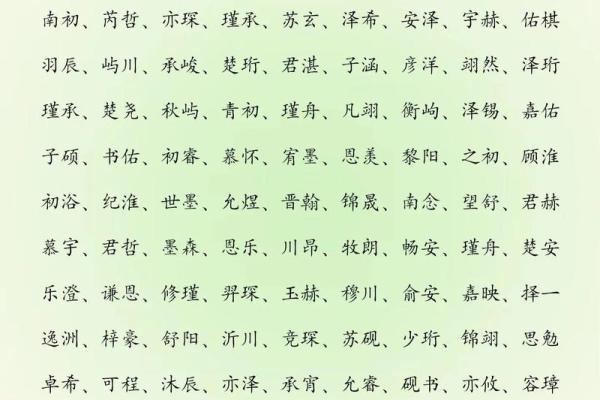 南初、芮哲、亦琛、瑾承、苏玄、泽希、安泽、宇赫、佑棋
羽辰、屿川、承峻、楚珩、君湛、子涵、彦洋、翊然、泽珩
瑾承、楚尧、秋屿、青初、瑾舟、凡翊、衡岣、泽锡、嘉佑
子硕、书佑、初睿、慕怀、宥墨、恩羡、黎阳、之初、顾淮
初浴、纪淮、世墨、允煜、晋翰、锦晟、南念、望舒、君赫
慕宇、君哲、墨森、恩乐、川昂、牧朗、畅安、瑾舟、楚安
乐澄、谦恩、修瑾、羿琛、玉赫、穆川、俞安、嘉映、择一
逸洲、梓豪、舒阳、沂川、竞琛、苏砚、少珩、锦翊、思勉
卓希、可程、沐辰、亦泽、承宵、允睿、砚书、亦攸、容璋